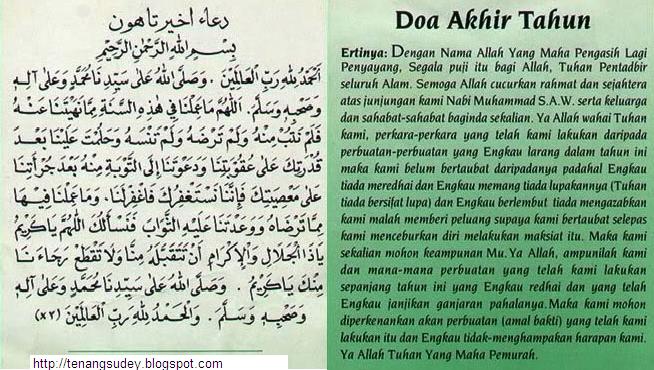 دعاء اخير تاهون
بِسْمِ اللهِ الرَّحْمٰنِ الرَّحِيْمِ
اَلْحَمْدُ لِلّٰهِ رَبِّ الْعَالَمِيْنَ . وَصَلَّى اللهُ عَلَى سَيِّدِنَا مُحَمَّدٍ وَعَلَى آلِهِ
وَصَحْبِهِ وَسَلَّمَ . اَللّٰهُمَّ مَا عَمِلْنَا فِي هٰذِهِ السَّنَةِ مِمَّا نَهَيْتَنَا عَنْهُ
فَلَمْ نَتُبْ مِنْهُ وَلَمْ تَرْضَهُ وَلَمْ تَنْسَهُ وَحَلِمْتَ عَلَيْنَا بَعْدَ
قُدْرَتِكَ عَلَى عُقُوْبَتِنَا وَدَعَوْتَنَا إِلَى التَّوْبَةِ مِنْهُ بَعْدَ جُرْأَتِنَا
عَلَى مَعْصِيَتِكَ فَإِنَّنَا نَسْتَغْفِرُكَ فَاغْفِرْلَنَا ، وَمَا عَمِلْنَا فِيْهَا
مِمَّا تَرْضَاهُ وَوَعَدْتَنَا عَلَيْهِ الثَّوَابَ فَنَسْأَلُكَ اللّٰهُمَّ يَا كَرِيْمُ
يَا ذَا الْجَلَالِ وَالْإِكْرَامِ أَنْ تَتَقَبَّلَهُ مِنَّا وَلَا تَقْطَعْ رَجَاءَنَا
مِنْكَ يَا كَرِيْمُ . وَصَلَّى اللهُ عَلَى سَيِّدِنَا مُحَمَّدٍ وَعَلَى آلِهِ
وَصَحْبِهِ وَسَلَّمَ . وَالْحَمْدُ لِلّٰهِ رَبِّ الْعَالَمِيْنَ (٢×)
http://tenangsudey.blogspot.com
Doa Akhir Tahun
Ertinya: Dengan Nama Allah Yang Maha Pengasih Lagi
Penyayang, Segala puji itu bagi Allah, Tuhan Pentadbir
seluruh Alam. Semoga Allah cucurkan rahmat dan sejahtera
atas junjungan kami Nabi Muhammad S.A.W. serta keluarga
dan sahabat-sahabat baginda sekalian. Ya Allah wahai Tuhan
kami, perkara-perkara yang telah kami lakukan daripada
perbuatan-perbuatan yang Engkau larang dalam tahun ini
maka kami belum bertaubat daripadanya padahal Engkau
tiada meredhai dan Engkau memang tiada lupakannya (Tuhan
tiada bersifat lupa) dan Engkau berlembut tiada mengazabkan
kami malah memberi peluang supaya kami bertaubat selepas
kami menceburkan diri melakukan maksiat itu. Maka kami
sekalian mohon keampunan Mu.Ya Allah, ampunilah kami
dan mana-mana perbuatan yang telah kami lakukan
sepanjang tahun ini yang Engkau redhai dan yang telah
Engkau janjikan ganjaran pahalanya.Maka kami mohon
diperkenankan akan perbuatan (amal bakti) yang telah kami
lakukan itu dan Engkau tidak-menghampakan harapan kami.
Ya Allah Tuhan Yang Maha Pemurah.